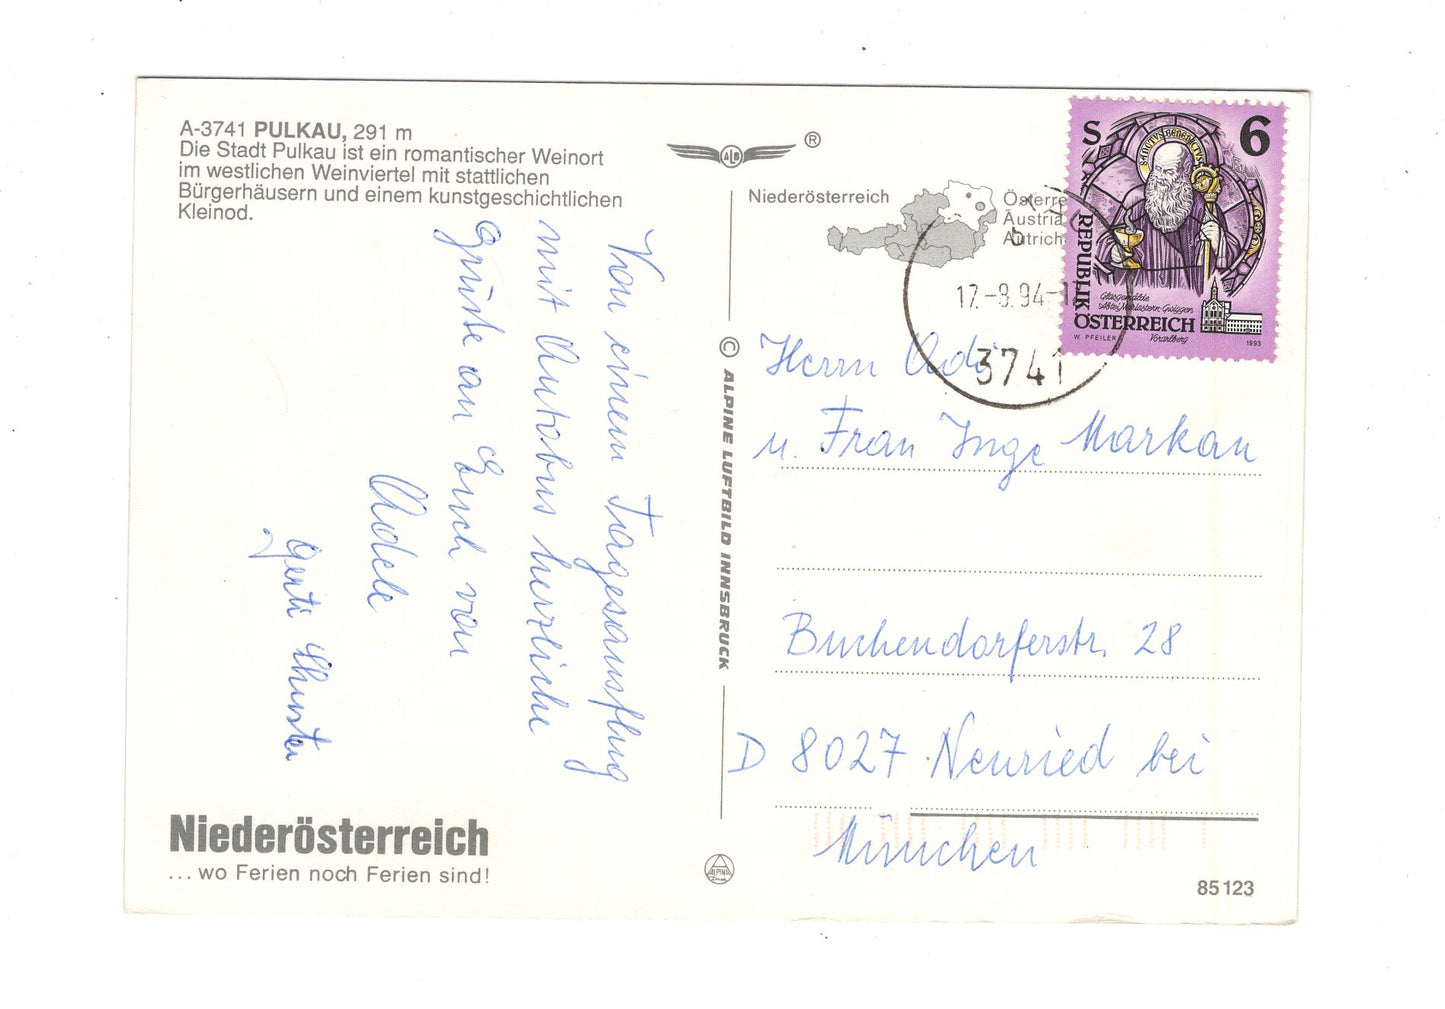 A-3741 PULKAU, 291 m
Die Stadt Pulkau ist ein romantischer Weinort
im westlichen Weinviertel mit stattlichen
Bürgerhäusern und einem kunstgeschichtlichen
Kleinod.
Von einem Tagesausflug
mit Autobus herzliche
Grüße an Euch von
Adele
Gerti
Niederösterreich
... wo Ferien noch Ferien sind!
ALB ®
© ALPINE LUFTBILD INNSBRUCK
ALPINE
Niederösterreich
Österre
Austria
Autrich
17.-8.94-1
3741
S 6
SANCTVS BENEDICTVS
REPUBLIK
ÖSTERREICH
Glasgemälde
Abtei Mariastern-Gwiggen
Vorarlberg
W. PFEILER
1993
Herrn Adi
u. Frau Inge Markau
Buchendorferstr. 28
D 8027 Neuried bei
München
85123